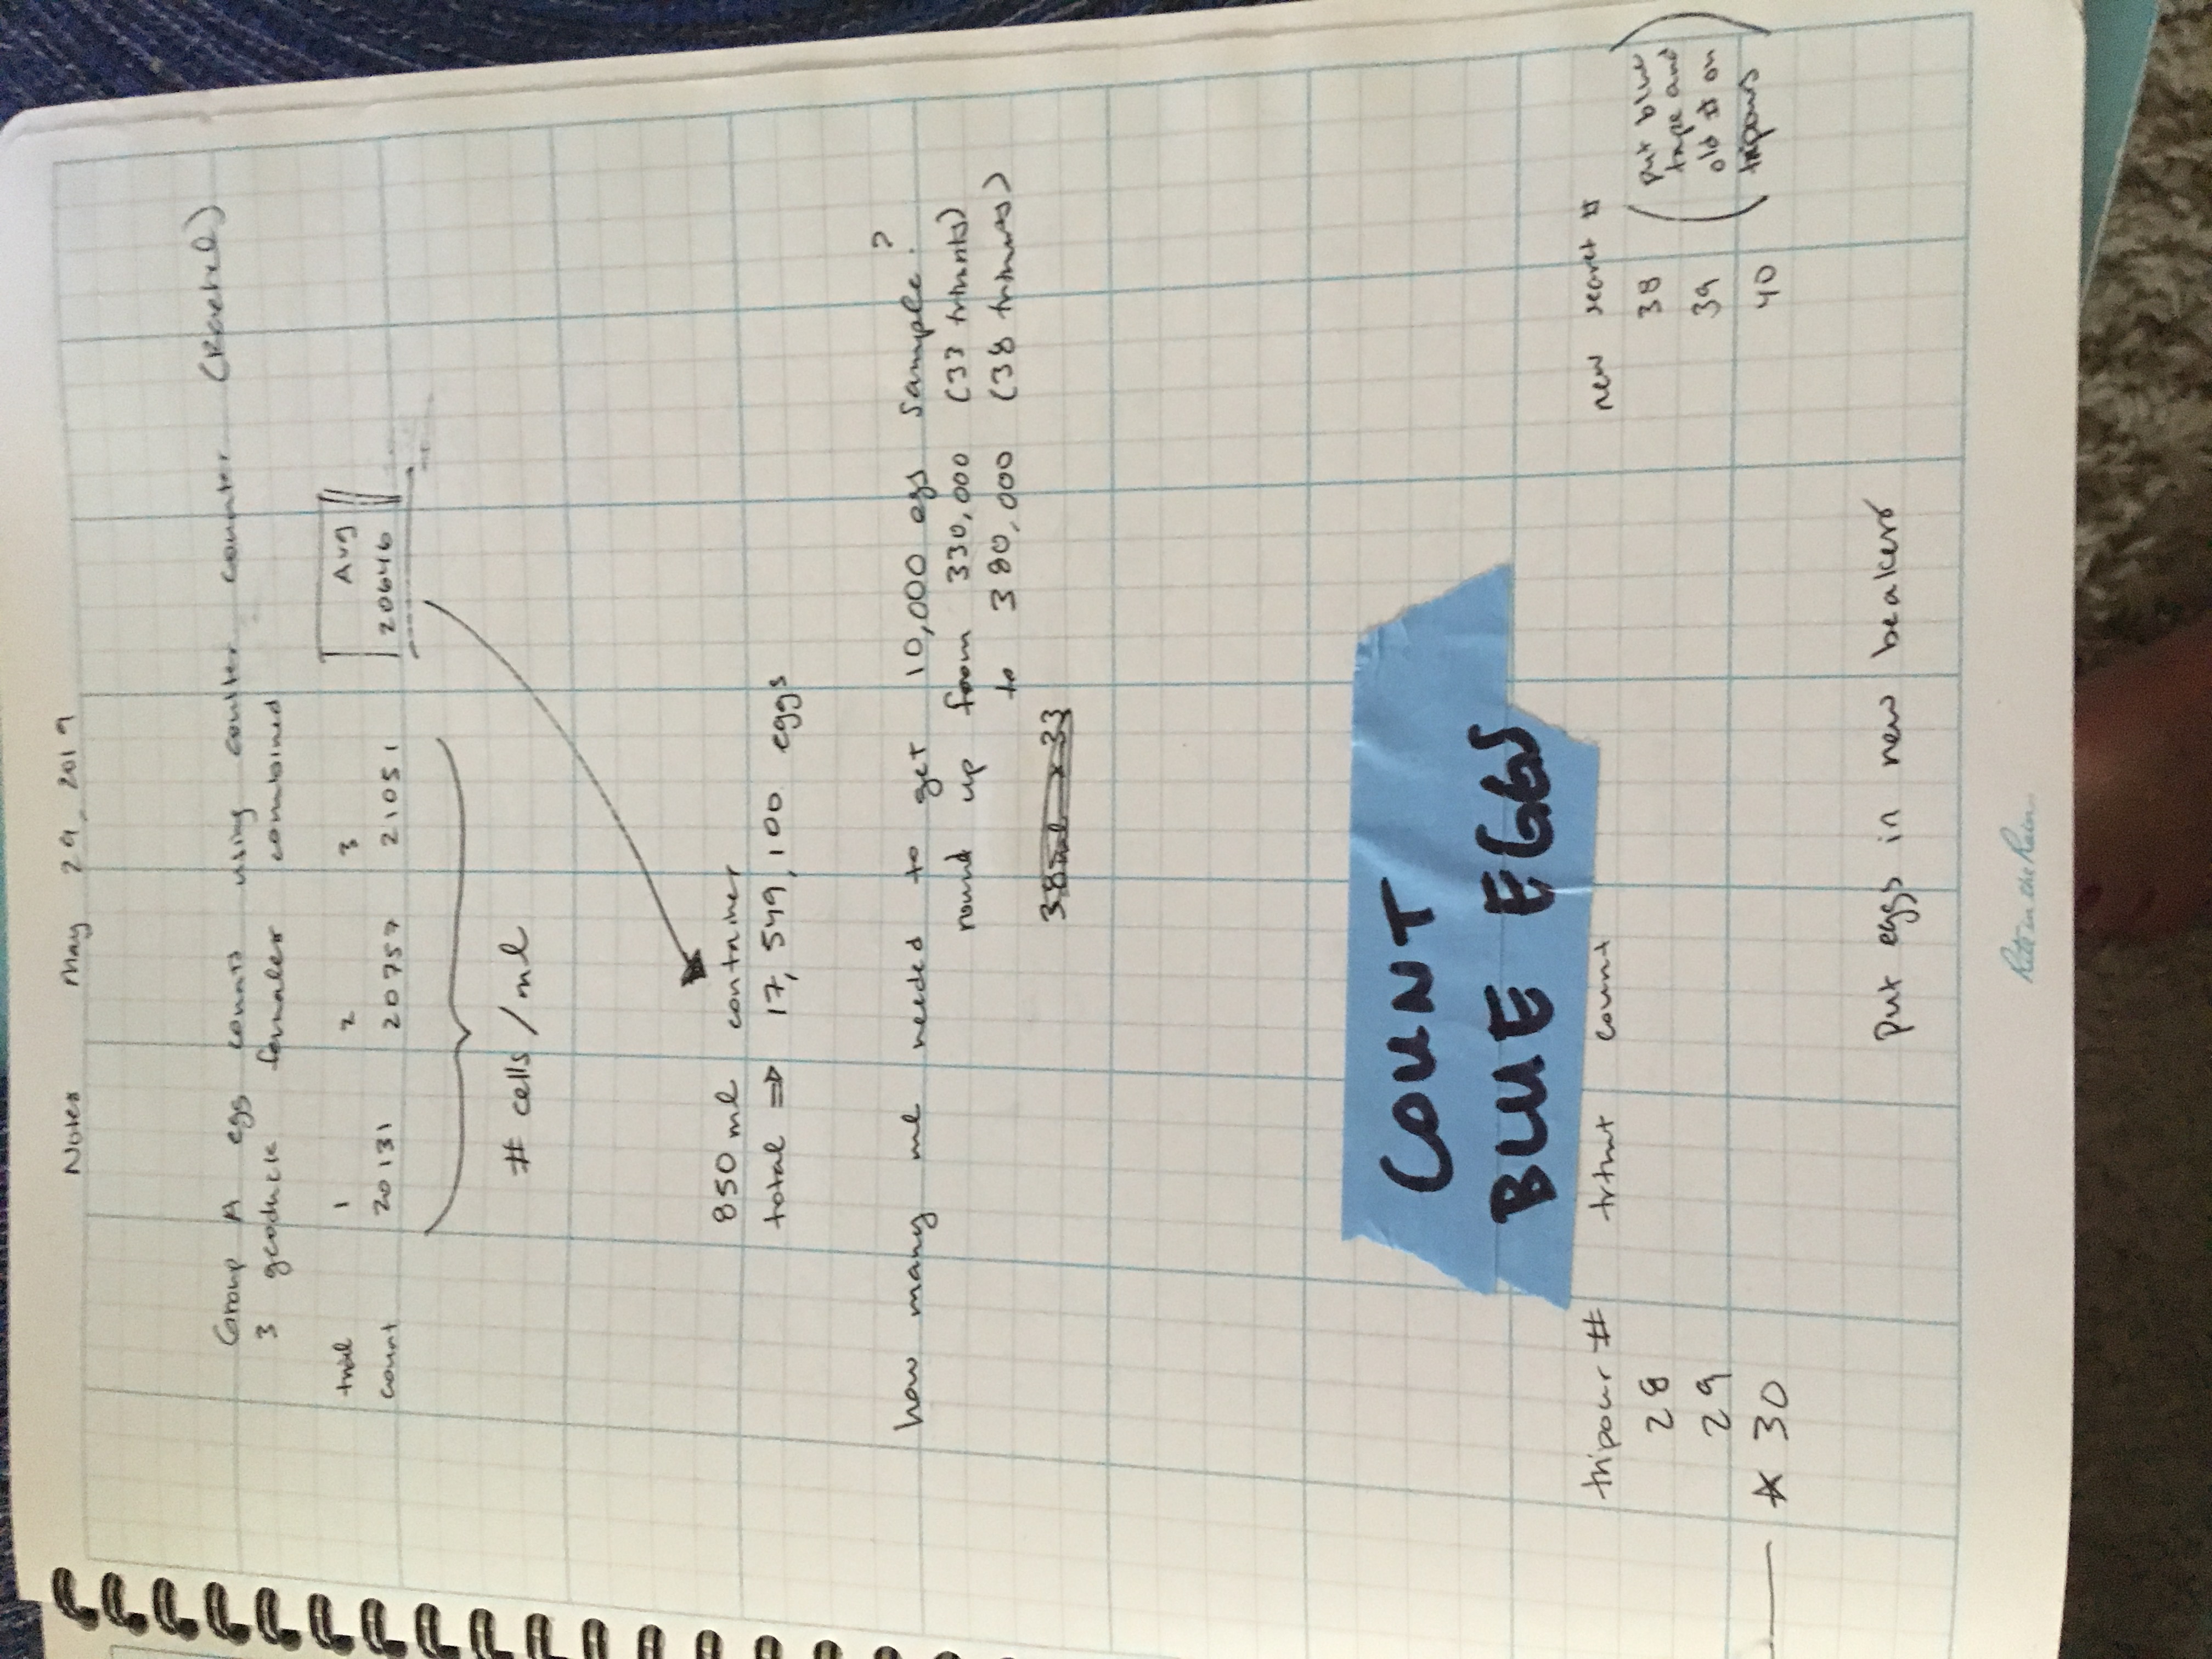 Notes May 29, 2019
Group A egg counts using coulter counter (Rachel)
3 geoduck females combined
trial 1 2 3 Avg
count 20131 20757 21051 20646
# cells/ml
850 ml container
total ⇒ 17,549,100 eggs
how many ml needed to get 10,000 egs sample?
round up from 330,000 (33 trtmnts)
to 380,000 (38 trtmnts)
38 ml x 33
COUNT
BLUE EGGS
tripour # trtmt count new secret #
28 38 (put blue
tape and
29 39 old # on
☆ 30 40 tripours)
Put eggs in new beakers
Rite in the Rain